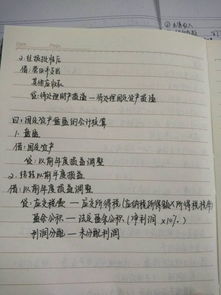 2. 经批准后
借：营业外支出
其他应收款
贷：待处理财产损溢 — 待处理固定资产损溢
四：固定资产盘盈的会计核算
1. 盘盈
借：固定资产
贷：以前年度损益调整
2. 结转以前年度损益
借：以前年度损益调整
贷：应交税费 — 应交所得税（应纳税所得额×所得税税率）
盈余公积 — 法定盈余公积（净利润×10%）
利润分配 — 未分配利润